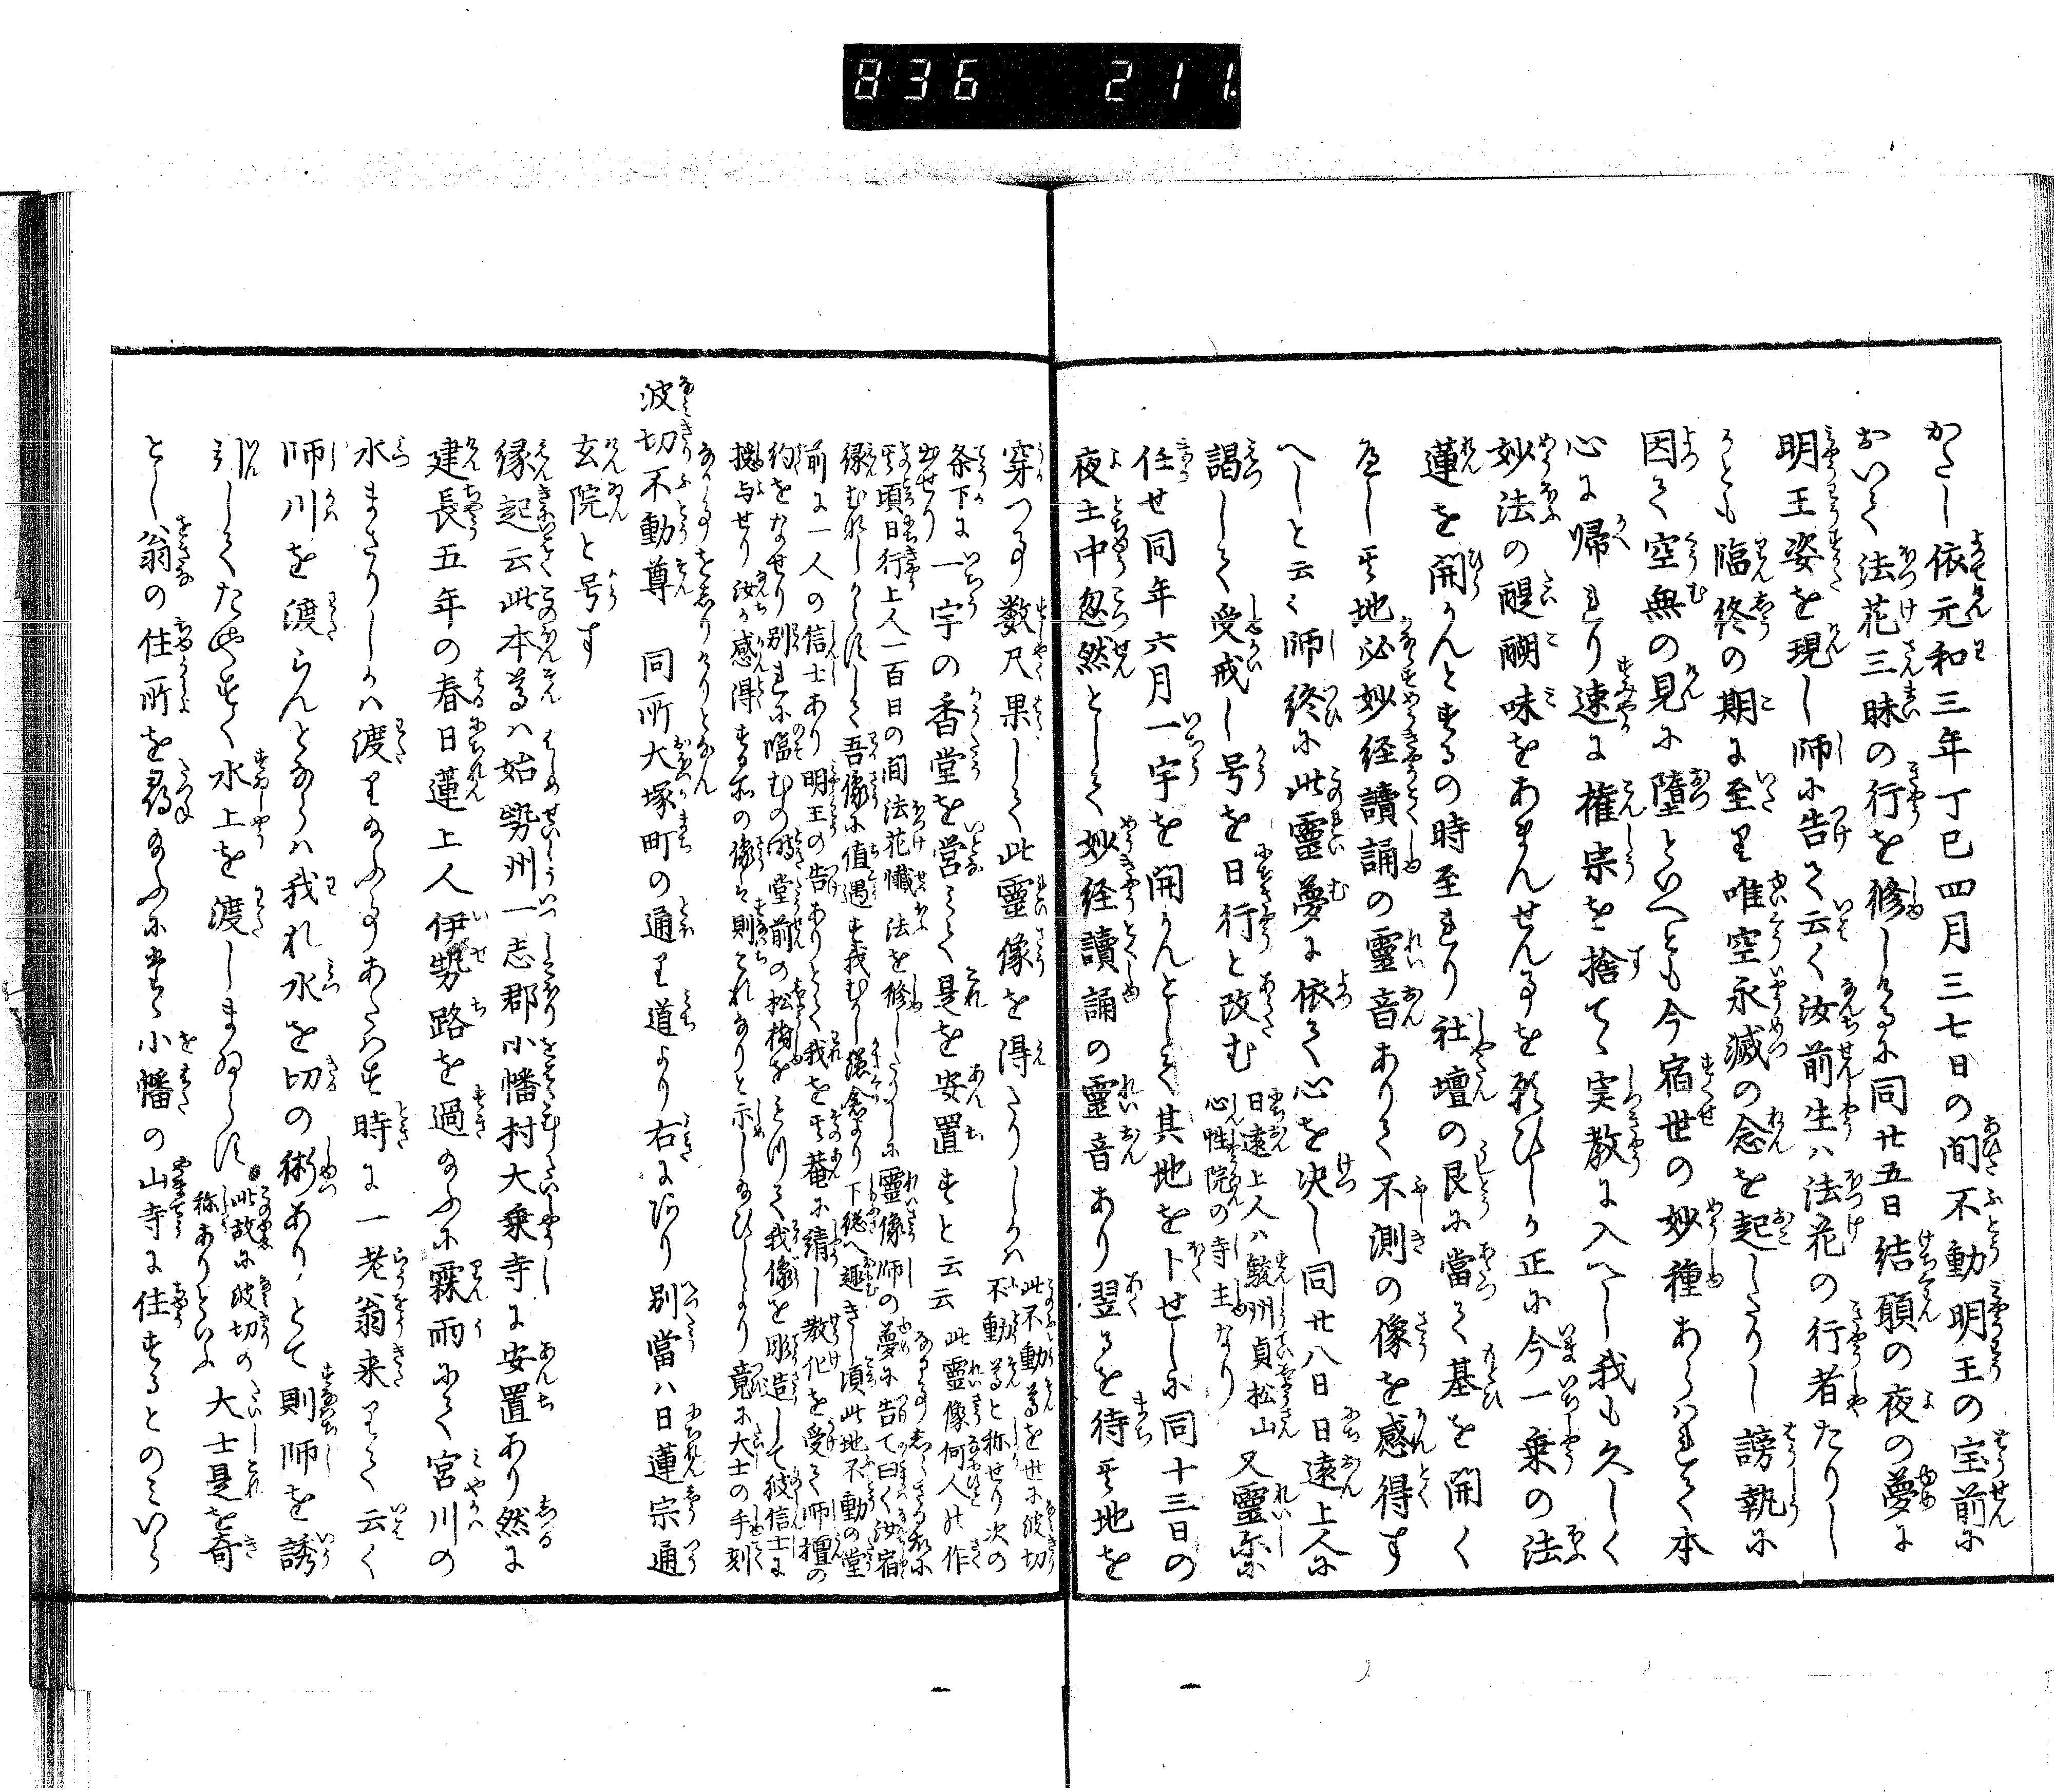 836 211.
かたし依元和三年丁巳四月三七日の間不動明王の宝前に
おいて法花三昧の行を修しけるに同廿五日結願の夜の夢に
明王姿を現し師に告て云く汝前生ハ法花の行者たりし
かとも臨終の期に至り唯空永滅の念を起したりし謗執に
因て空無の見に堕といへとも今宿世の妙種あらハれて本
心に帰れり速に権宗を捨てゝ実教に入へし我も久しく
妙法の醍醐味をあまんせん事を願ひしか正に今一乗の法
蓮を開かんとするの時至れり社壇の艮に當て基を開く
へし其地必妙経讀誦の靈音ありて不測の像を感得す
へしと云く師終に此靈夢に依て心を决し同廿八日日遠上人に
謁して受戒し号を日行と改む
日遠上人ハ駿州貞松山
心性院の寺主なり
又靈示に
任せ同年六月一宇を開かんとして其地を卜せしに同十三日の
夜土中忽然として妙経讀誦の靈音あり翌るを待其地を
穿つ事数尺果して此靈像を得たりしかハ
此不動尊を世に波切
不動尊と称せり次の
条下に
出せり
一宇の香堂を営みて是を安置すと云云
此靈像何人の作
なる事しらさる故に
其頃日行上人一百日の間法花懺法を修したりしに靈像師の夢に告て曰く汝宿
縁むなしからすして吾像に値遇す我むかし鎌倉より下総へ趣きし頃此地不動の堂
前に一人の信士あり明王の告ありとて我を其菴に請し教化を受て師檀の
約をなせり別れに臨むの時堂前の松樹をとりて我像を彫造して彼信士に
授与せり汝か感得する所の像ハ則これなりと示し給ひしより竟に大士の手刻
なる事をしりけりとなん
波切不動尊　同所大塚町の通り道より右にあり別當ハ日蓮宗通
玄院と号す
縁起云此本尊ハ始勢州一志郡小幡村大乗寺に安置あり然に
建長五年の春日蓮上人伊勢路を過給ふに霖雨にて宮川の
水まさりしかハ渡り給ふ事あたハす時に一老翁来りて云く
師川を渡らんとならハ我れ水を切の術あり、とて則師を誘
引してたやすく水上を渡しまゐらす
此故に波切の
称ありといふ
大士是を奇
とし翁の住所を尋給ふに豊小幡の山寺に住するとのミいら